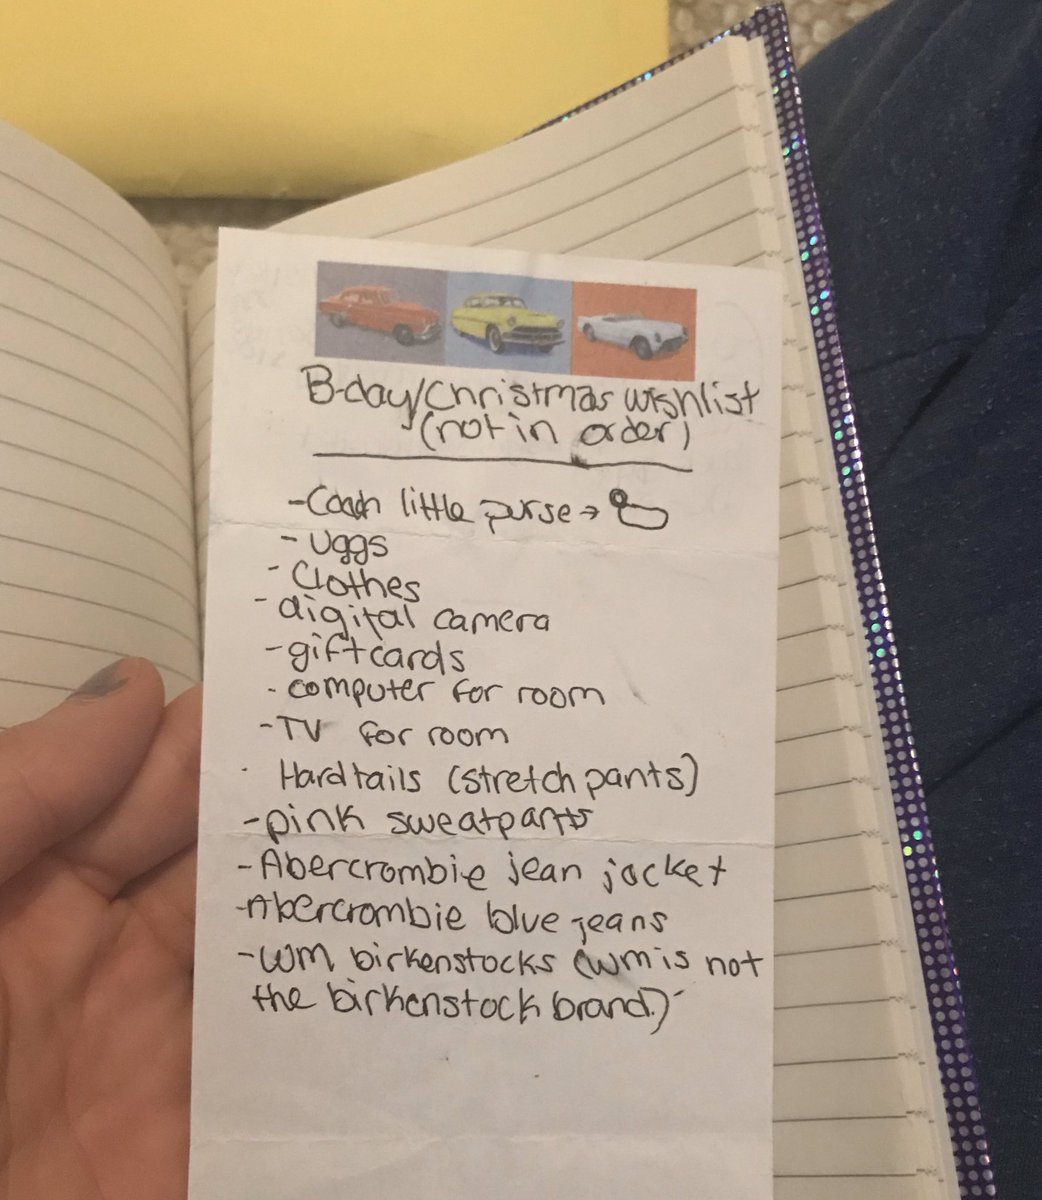 B-day/Christmas wishlist
(not in order)
-Coach little purse →
- Uggs
- Clothes
- digital camera
- giftcards
- computer for room
- TV for room
· Hardtails (stretch pants)
- pink sweatpants
- Abercrombie jean jacket
- Abercrombie blue jeans
- WM birkenstocks (WM is not
the birkenstock brand.)